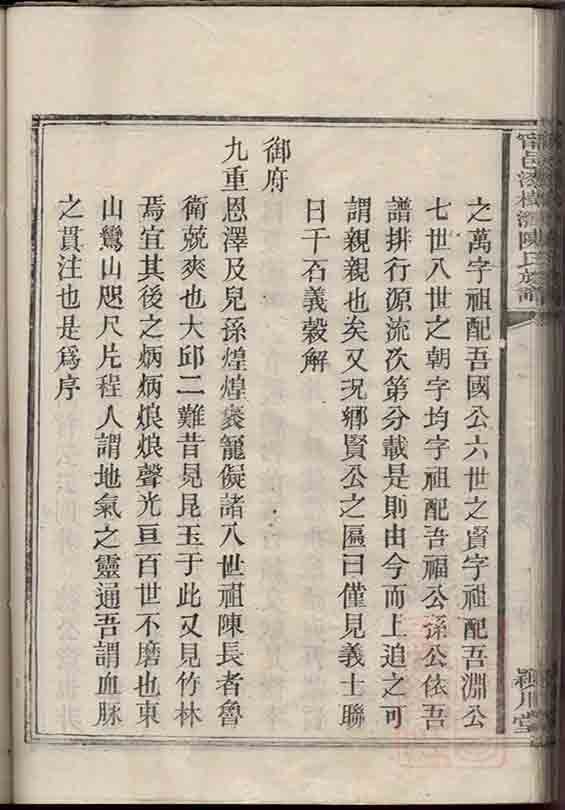 陳氏族譜
潁川堂
之萬字祖配吾國公六世之賢字祖配吾淵公
七世八世之朝字均字祖配吾福公孫公依吾
譜排行源流次第分載是則由今而上追之可
謂親親也矣又況鄉賢公之匾曰僅見義士聯
曰千石義穀解
御府
九重恩澤及兒孫煌煌袞寵儗諸八世祖陳長者魯
衛兢爽也大邱二難昔晃昆玉于此又見竹林
焉宜其後之炳炳烺烺聲光亘百世不磨也東
山鸞山咫尺片程人謂地氣之靈通吾謂血脉
之貫注也是爲序